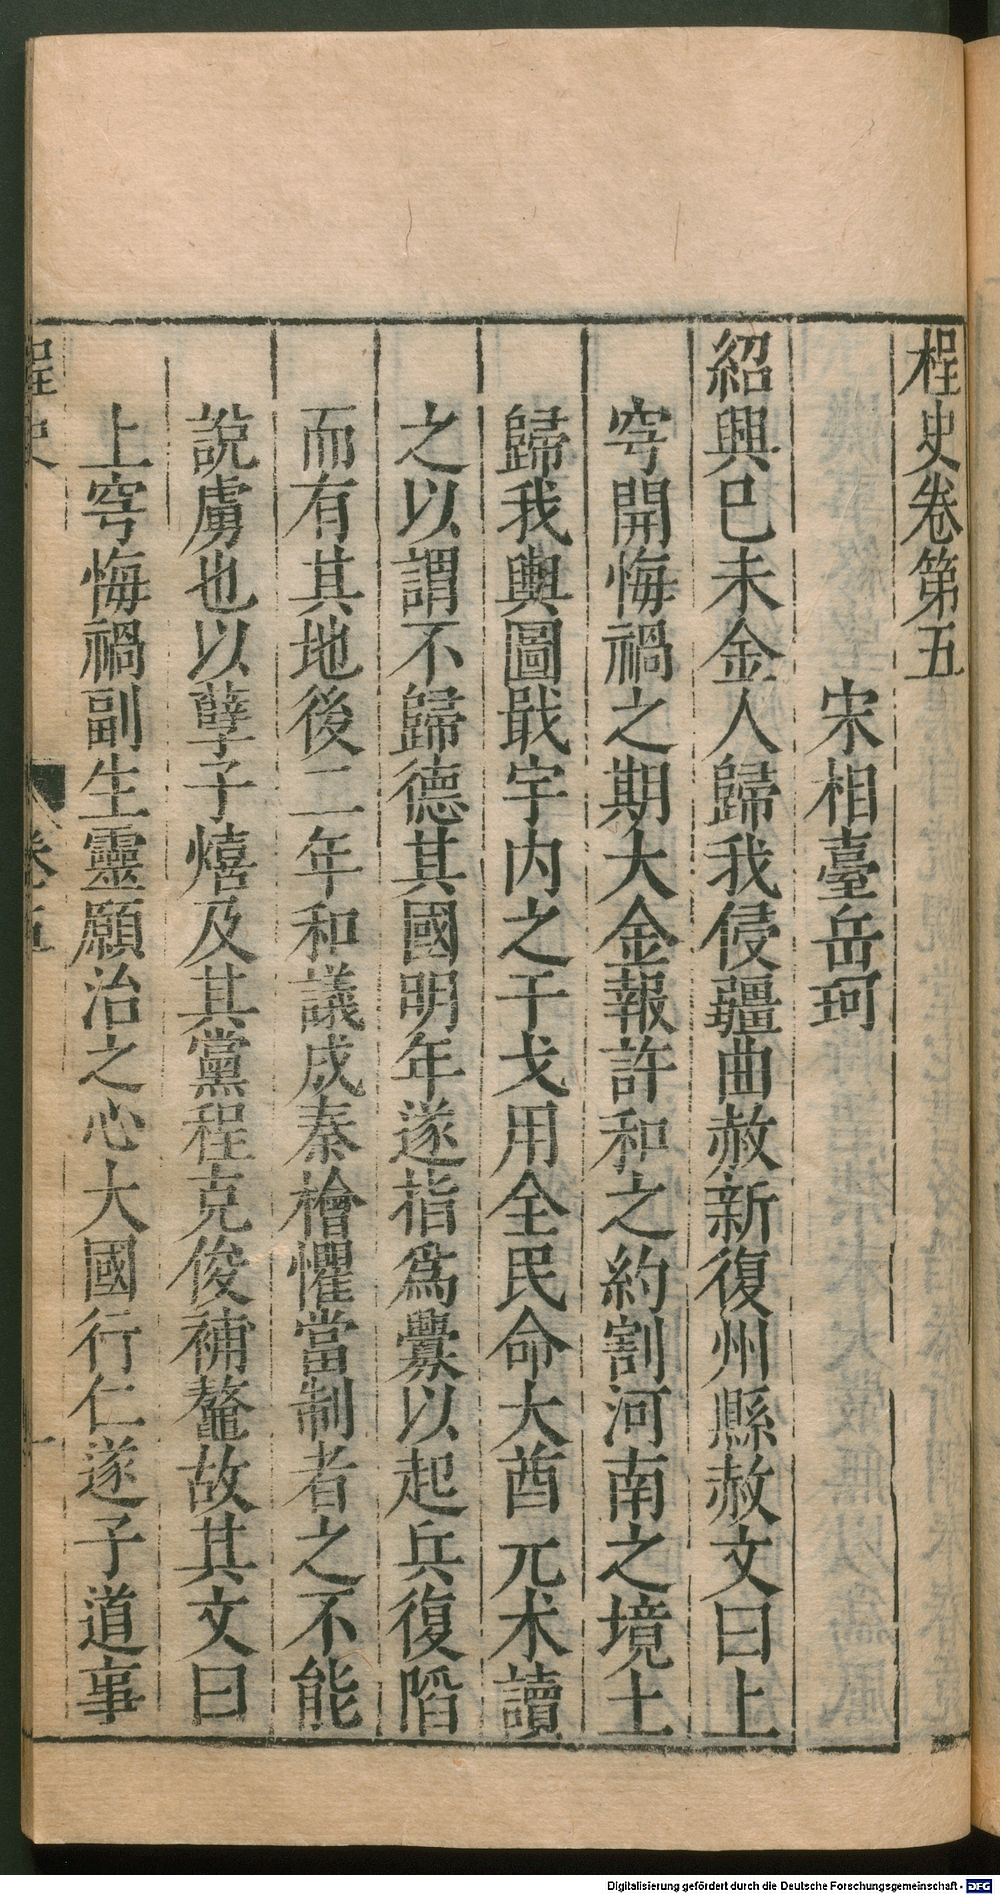 桯史卷第五
宋相臺岳珂
紹興巳未金人歸我侵疆曲赦新復州縣赦文曰上
穹開悔禍之期大金報許和之約割河南之境土
歸我輿圖戢宇内之干戈用全民命大酋兀术讀
之以謂不歸德其國明年遂指爲釁以起兵復陷
而有其地後二年和議成秦檜懼當制者之不能
說虜也以孽子熺及其黨程克俊補鼇故其文曰
上穹悔禍副生靈願治之心大國行仁遂子道事
桯史
卷五
一
Digitalisierung gefördert durch die Deutsche Forschungsgemeinschaft - DFG